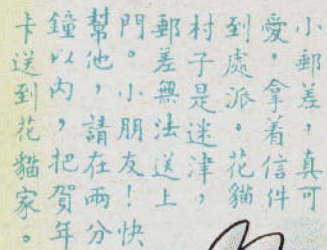 小郵差，真可
愛，拿着信件
到處派。花貓
村子是迷津，
郵差無法送上
門。小朋友！快
幫他，請在兩分
鐘以內，把賀年
卡送到花貓家。